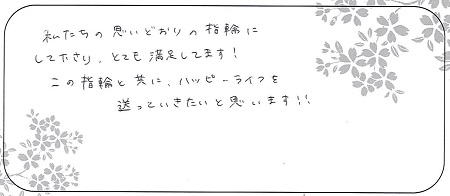 私たちの思いどおりの指輪に
して下さり、とても満足してます！
この指輪と共に、ハッピーライフを
送っていきたいと思います！！